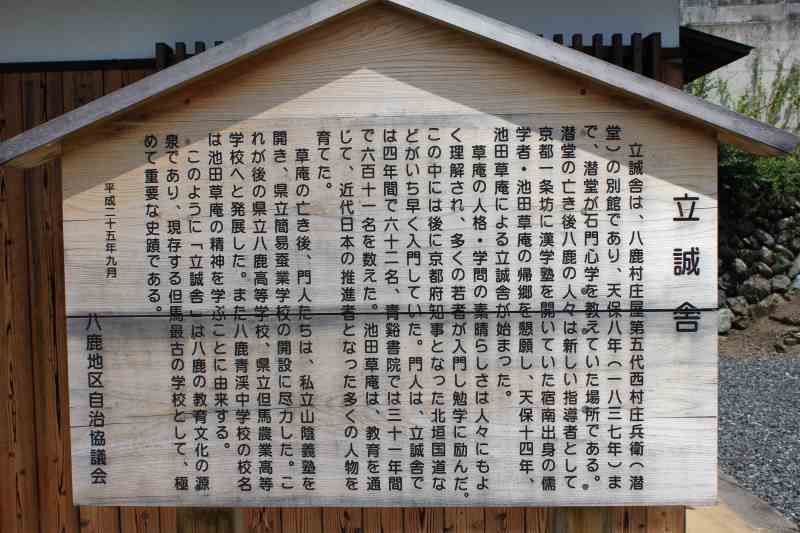 立誠舎
立誠舎は、八鹿村庄屋第五代西村庄兵衛（潜
堂）の別館であり、天保八年（一八三七年）ま
で、潜堂が石門心学を教えていた場所である。
潜堂の亡き後八鹿の人々は新しい指導者として
京都一条坊に漢学塾を開いていた宿南出身の儒
学者・池田草庵の帰郷を懇願し、天保十四年、
池田草庵による立誠舎が始まった。
草庵の人格・学問の素晴らしさは人々にもよ
く理解され、多くの若者が入門し勉学に励んだ。
この中には後に京都府知事となった北垣国道な
どがいち早く入門していた。門人は、立誠舎で
は四年間で六十二名、青谿書院では三十一年間
で六百十一名を数えた。池田草庵は、教育を通
じて、近代日本の推進者となった多くの人物を
育てた。
草庵の亡き後、門人たちは、私立山陰義塾を
開き、県立簡易蚕業学校の開設に尽力した。こ
れが後の県立八鹿高等学校、県立但馬農業高等
学校へと発展した。また八鹿青渓中学校の校名
は池田草庵の精神を学ぶことに由来する。
このように「立誠舎」は八鹿の教育文化の源
泉であり、現存する但馬最古の学校として、極
めて重要な史蹟である。
平成二十五年九月
八鹿地区自治協議会